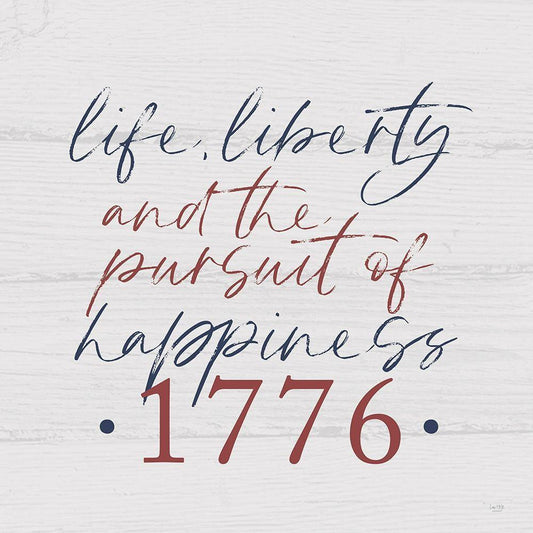 life, liberty
and the
pursuit of
happiness
• 1776 •